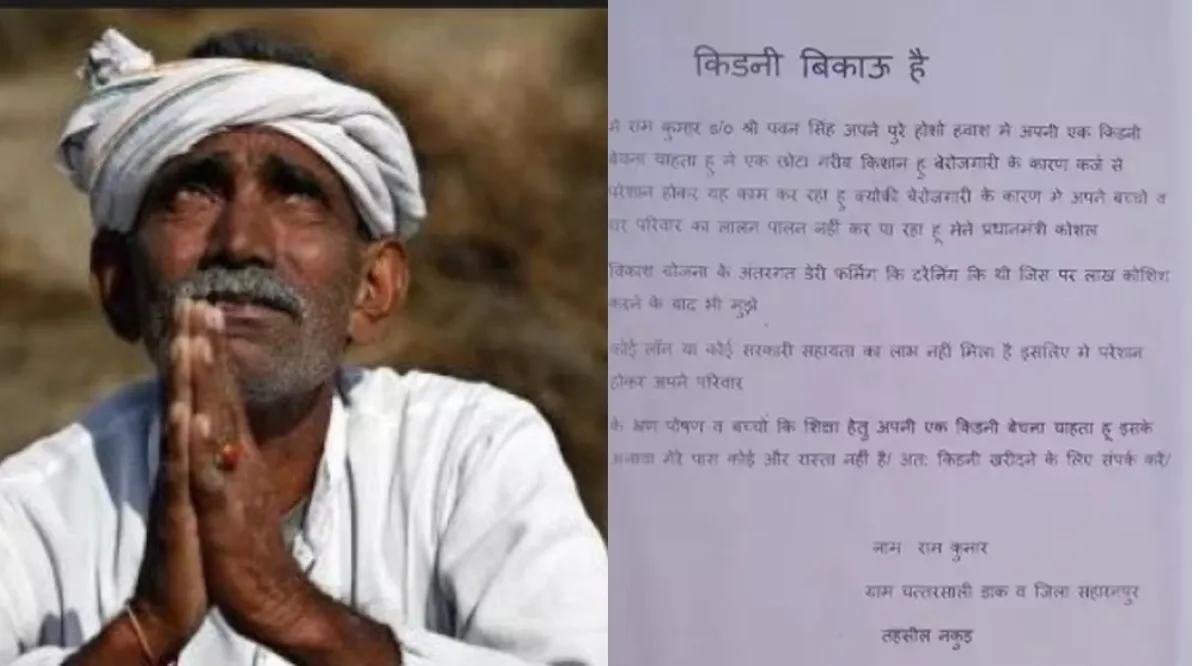 किडनी बिकाऊ है
मे राम कुमार s/o श्री पवन सिंह अपने पुरे होशो हवाश मे अपनी एक किडनी
बेचना चाहता हू मे एक छोटा गरीब किशान हू बेरोजगारी के कारण कर्ज से
परेशान होकर यह काम कर रहा हू क्योकी बेरोजगारी के कारण मे अपने बच्चो व
घर परिवार का लालन पालन नहीं कर पा रहा हू मेने प्रधानमंत्री कोशल
विकाश योजना के अंतरगत डेरी फर्मिंग कि टरेनिंग कि थी जिस पर लाख कोशिश
करने के बाद भी मुझे
कोई लॉन या कोई सरकारी सहायता का लाभ नही मिला है इसलिए मे परेशान
होकर अपने परिवार
के पोषण व बच्चों कि शिक्षा हेतु अपनी एक किडनी बेचना चाहता हू इसके
अलावा मेरे पास कोई और रास्ता नहीं है/ अत: किडनी खरीदने के लिए संपर्क करे/
नाम राम कुमार
ग्राम चत्तरसाली डाक व जिला सहारनपुर
तहसील नकुड